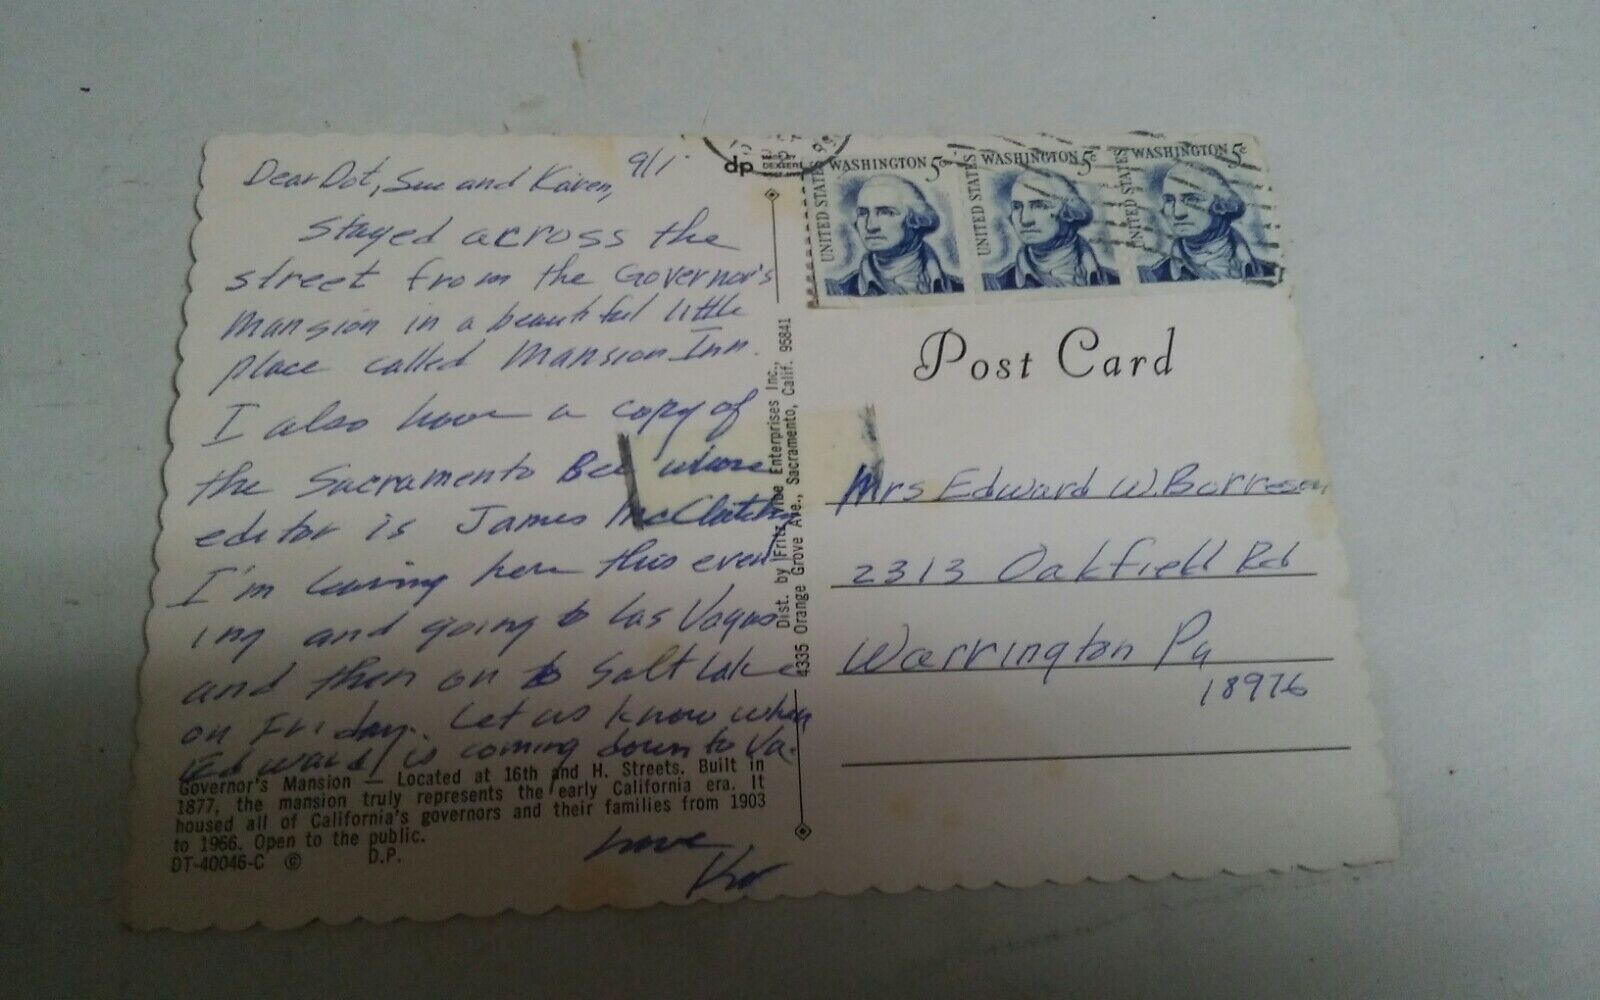 Dear Dot, Sue and Karen, 9/1
Stayed across the
street from the Governor's
Mansion in a beautiful little
place called Mansion Inn.
I also have a copy of
the Sacramento Bee whose
editor is James McClatchy
I'm leaving here this even
ing and going to Las Vagas
and then on to Salt Lake
on Friday. Let us know when
Edward is coming down to Va.
Love
Governor's Mansion — Located at 16th and H. Streets. Built in
1877, the mansion truly represents the early California era. It
housed all of California's governors and their families from 1903
to 1966. Open to the public.
DT-40046-C © D.P.
dp
Dist. by Fritz Enterprises Inc.,
4335 Orange Grove Ave., Sacramento, Calif. 95841
UNITED STATES WASHINGTON 5c
UNITED STATES WASHINGTON 5c
UNITED STATES WASHINGTON 5c
Post Card
Mrs Edward W. Borreson
2313 Oakfield Rd
Warrington Pa
18976